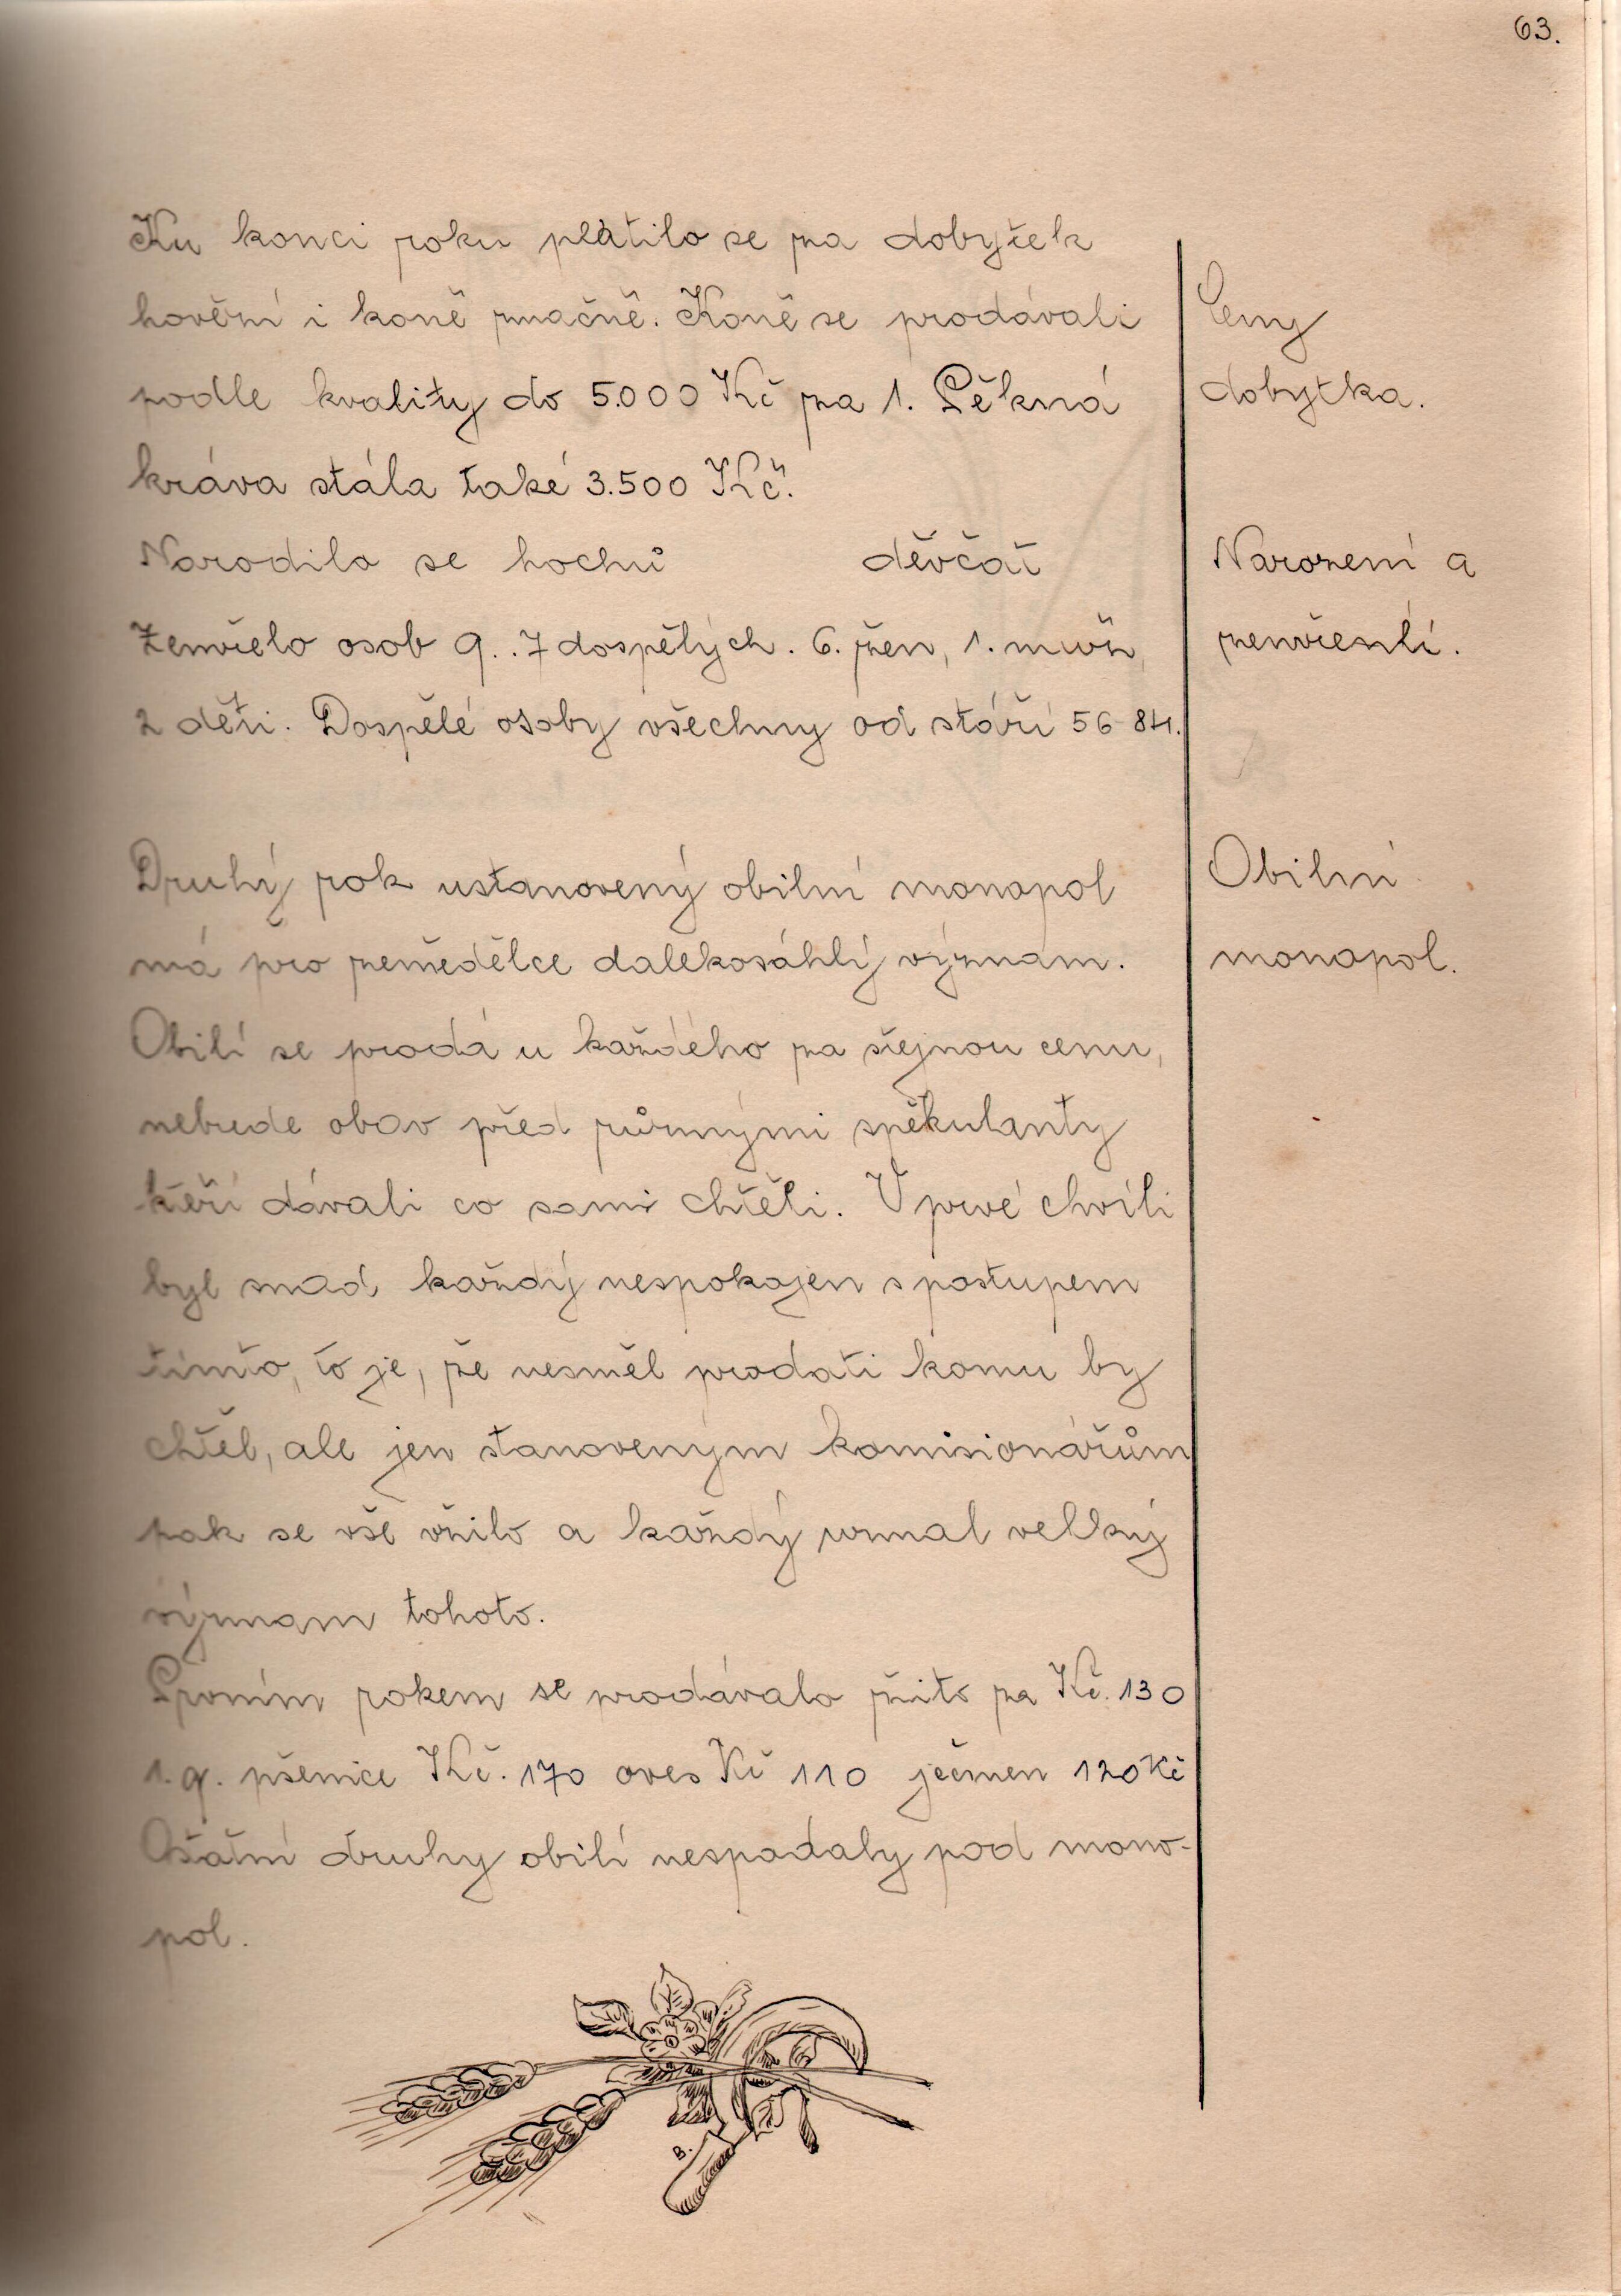 63.
Ku konci roku platilo se za dobytek
hovězí i koně značně. Koně se prodávali
podle kvality do 5.000 Kč za 1. Pěkná
kráva stála také 3.500 Kč.
Narodilo se hochů děvčat
Zemřelo osob 9. . 7 dospělých. 6. žen, 1. muž,
2 děti. Dospělé osoby všechny od stáří 56-84.
Druhý rok ustanovený obilní monopol
má pro zemědělce dalekosáhlý význam.
Obilí se prodá u každého za stejnou cenu,
nebude obav před různými spěkulanty
kteří dávali co sami chtěli. V prvé chvíli
byl snad každý nespokojen s postupem
tímto, to je, že nesměl prodati komu by
chtěl, ale jen stanoveným komisionářům
pak se vše vžilo a každý uznal velký
význam tohoto.
Prvním rokem se prodávalo žito za Kč. 130
1. q. pšenice Kč. 170 oves Kč 110 ječmen 120 Kč
Ostatní druhy obilí nespadaly pod mono-
pol.
Ceny
dobytka.
Narození a
zemřeslí.
Obilní
monopol.
B.